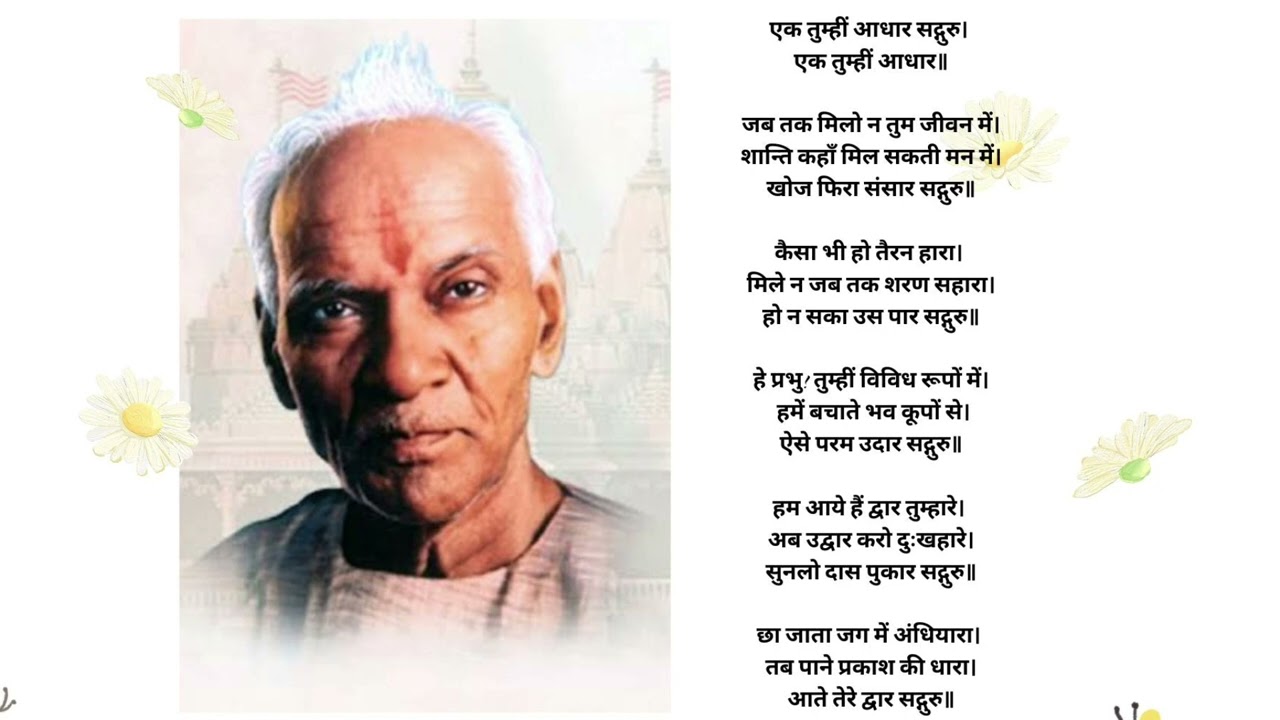 एक तुम्हीं आधार सद्गुरु।
एक तुम्हीं आधार॥
जब तक मिलो न तुम जीवन में।
शान्ति कहाँ मिल सकती मन में।
खोज फिरा संसार सद्गुरु॥
कैसा भी हो तैरन हारा।
मिले न जब तक शरण सहारा।
हो न सका उस पार सद्गुरु॥
हे प्रभु! तुम्हीं विविध रूपों में।
हमें बचाते भव कूपों से।
ऐसे परम उदार सद्गुरु॥
हम आये हैं द्वार तुम्हारे।
अब उद्वार करो दुःखहारे।
सुनलो दास पुकार सद्गुरु॥
छा जाता जग में अंधियारा।
तब पाने प्रकाश की धारा।
आते तेरे द्वार सद्गुरु॥